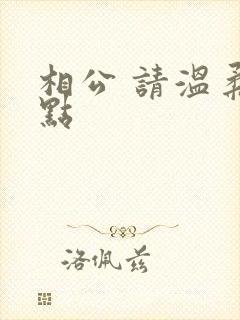 相公 請溫柔
點
洛佩兹